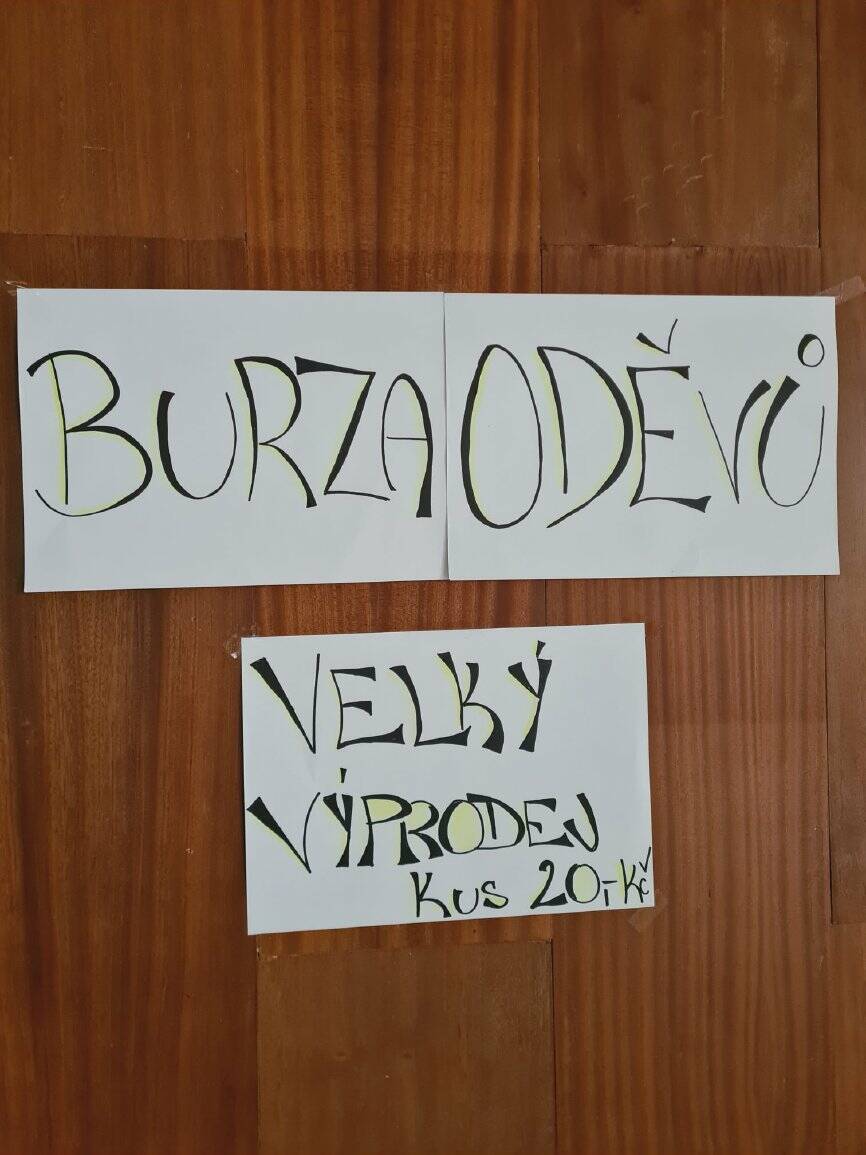 BURZA ODĚVŮ
VELKÝ
VÝPRODEJ
KUS 20,- Kč